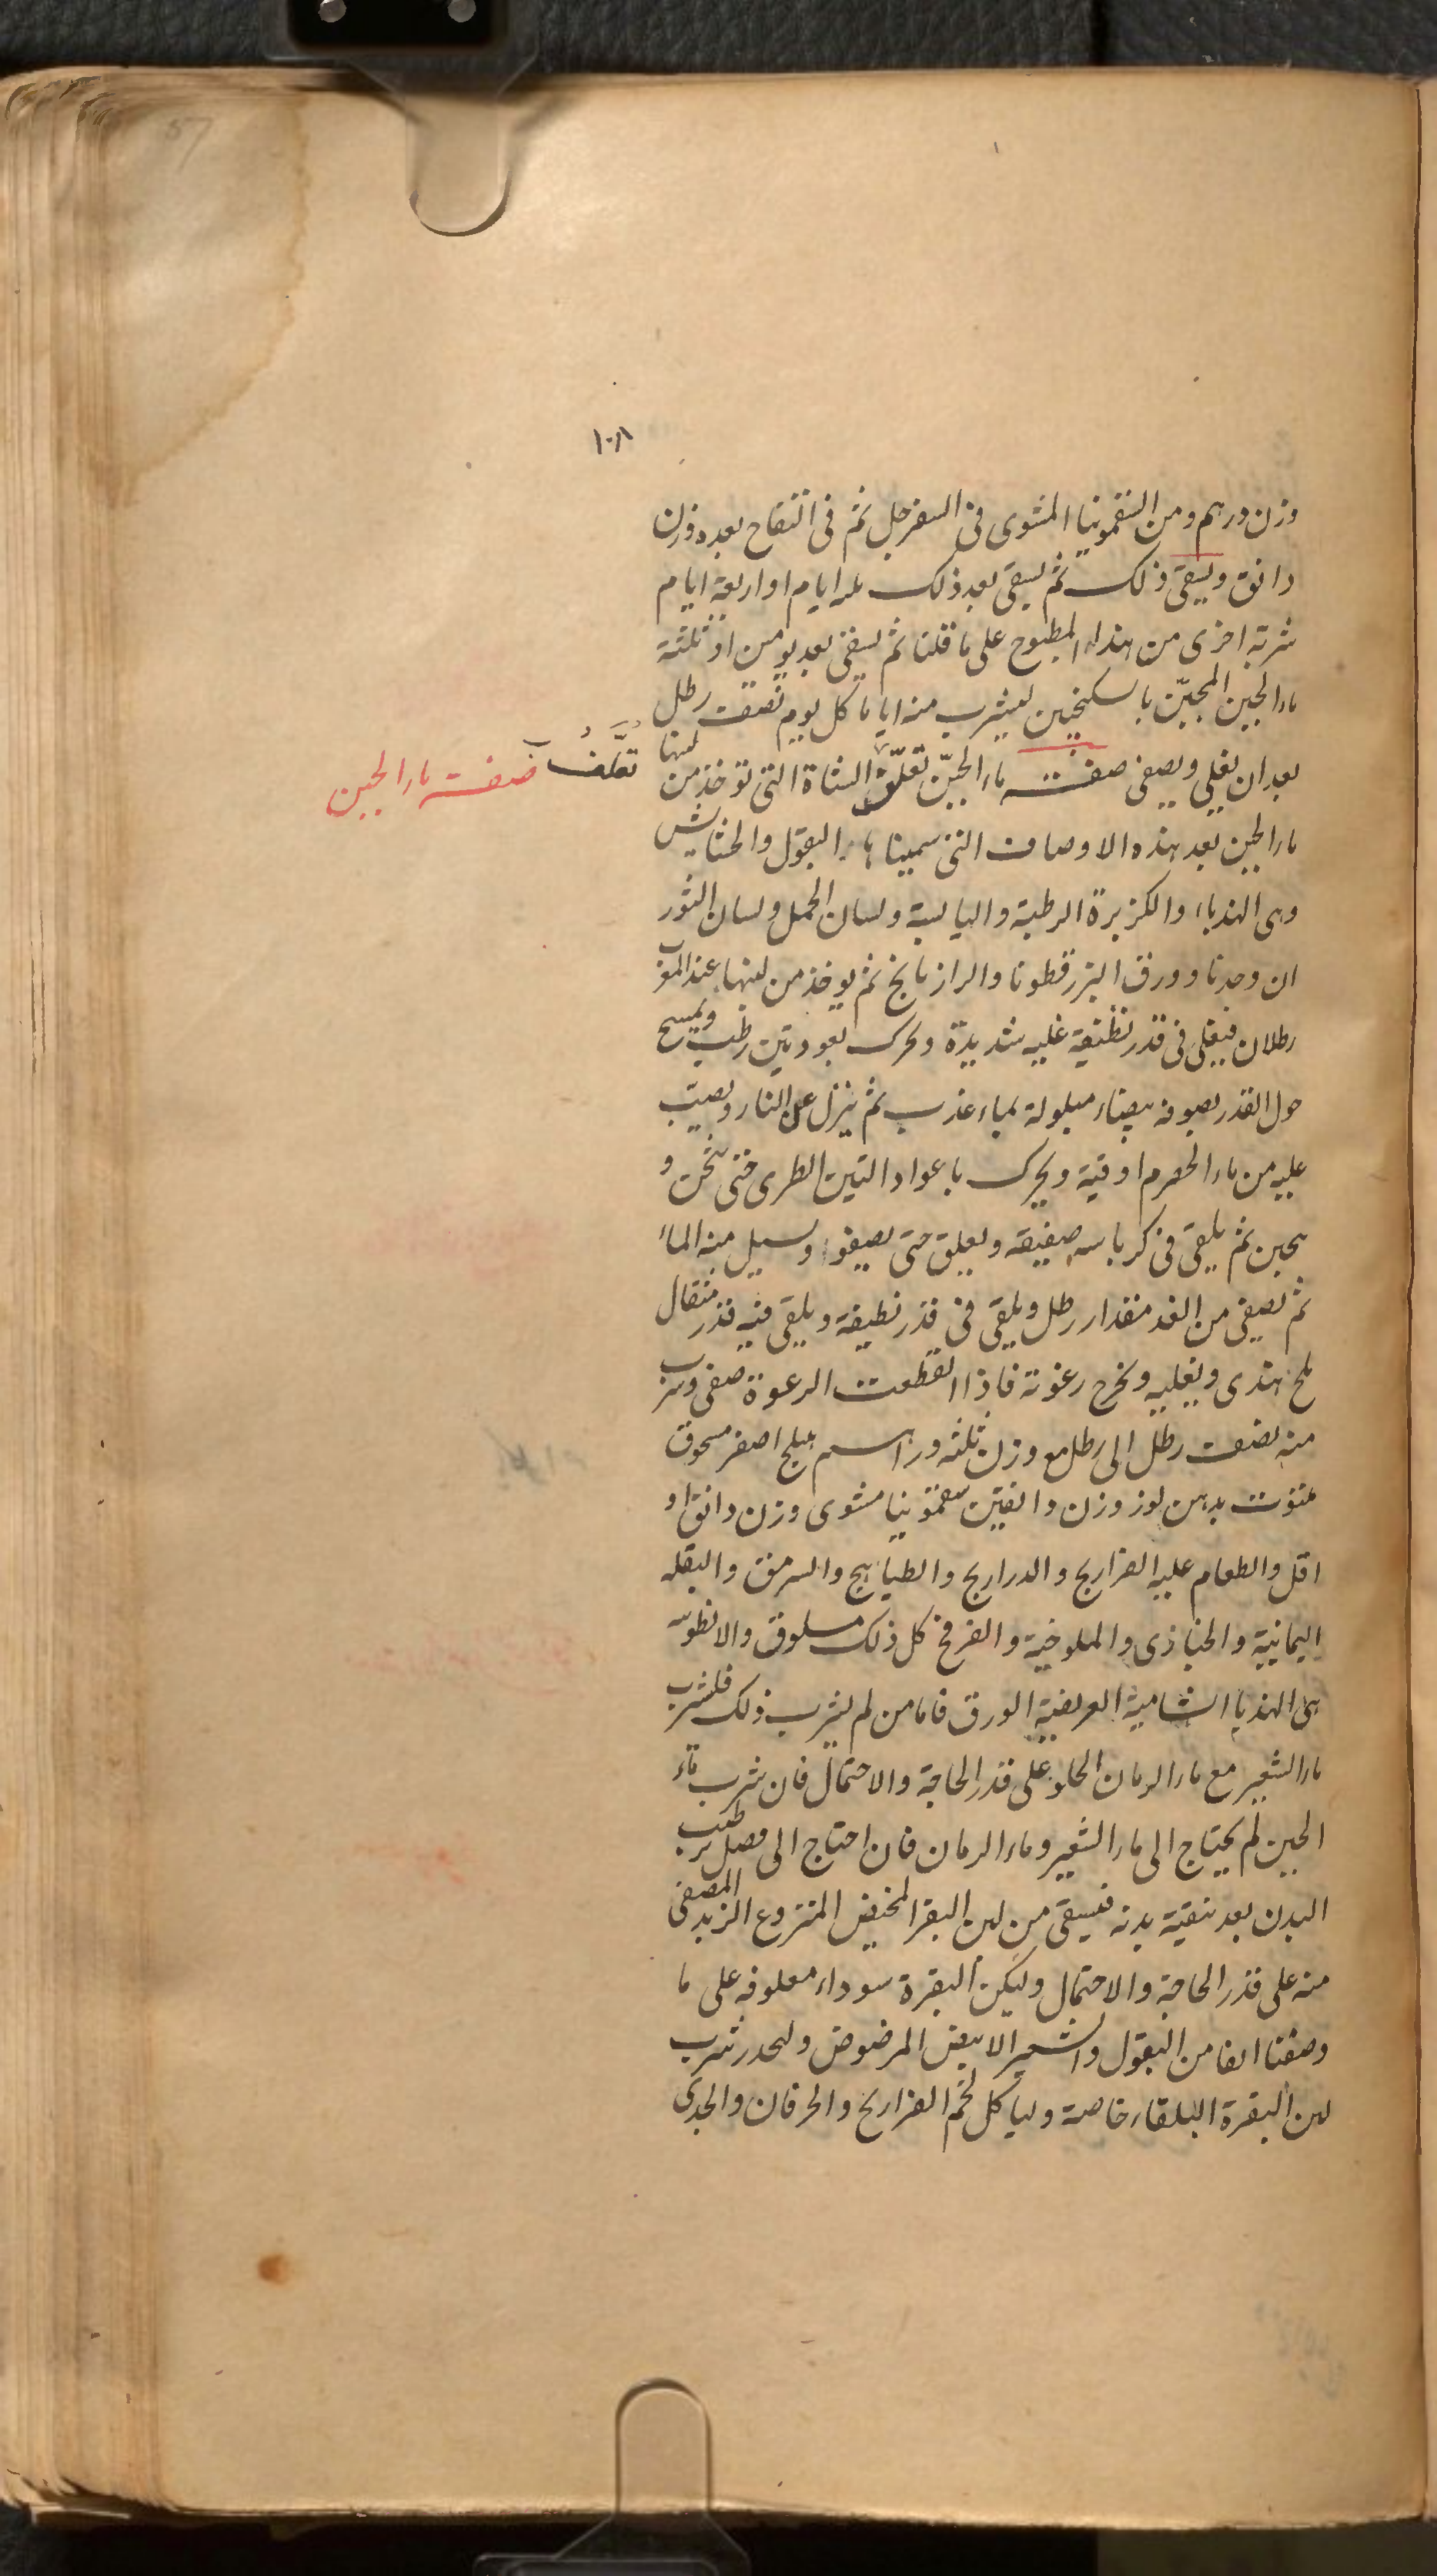 57
١٠٨
وزن درهم ومن السقمونيا المشوى فى السفرجل ثم فى التفاح بعده وزن
دانق ويسقى ذلك ثم يسقى بعد ذلك ايام او اربعة ايام
شربة اخرى من هذا المطبوخ على ما قلنا ثم يسقى بعد يومين او ثلثة
ماء الجبن المجبّن بالسكنجبين ليشرب منه اياما كل يوم نصف رطل
بعد ان يغلى ويصفى صفت ماء الجبن تعلف الشاة التى توخذ من لبنها
تعلف
صفت ماء الجبن
ماء الجبن بعد هذه الاوصاف التى سميناها البقول والحشايش
وهى الهندباء والكزبرة الرطبة واليابسة ولسان الحمل ولسان الثور
ان وجدنا وورق البزرقطونا والرازيانج ثم يوخذ من لبنها عند المغرب
رطلان فيغلى فى قدر نظيفة غليه شديدة ويحرك بعود تين رطب ويمسح
حول القدر بصوفة بيضاء مبلولة بماء عذب ثم ينزل عن النار ويصب
عليه من ماء الحصرم اوقية ويحرك باعواد التين الطرى حتى يثخن و
يجبن ثم يلقى فى كرباسه صفيقه ويعلق حتى يصفو ويسيل منه الماء
ثم يصفى من الغد مقدار رطل ويلقى فى قدر نظيفة ويلقى فيه قدر مثقال
ملح هندى ويغليه ويخرج رغوته فاذا انقطعت الرغوة صفى وشرب
منه نصف رطل الى رطل مع وزن ثلثه دراهم هليلج اصفر مسحوق
ملتوت بدهن لوز وزن دانقين سقمونيا مشوى وزن دانق او
اقل والطعام عليه الفراريج والدراريج والطياهيج والسرمق والبقله
اليمانية والخبازى والملوخية والفرفخ كل ذلك مسلوق والانطوبيه
هى الهندبا الشامية العريضة الورق فاما من لم يشرب ذلك فليشرب
ماء الشعير مع ماء الرمان الحلو على قدر الحاجة والاحتمال فان شرب ماء
الجبن لم يحتاج الى ماء الشعير وماء الرمان فان احتاج الى فضل ترطيب
البدن بعد تنقية بدنه فيسقى من لبن البقر المخيض المنزوع الزبد المصفى
منه على قدر الحاجة والاحتمال وليكن البقرة سوداء معلوفه على ما
وصفنا انفا من البقول والشعير الابيض المرضوض وليحذر شرب
لبن البقرة البلقاء خاصة ولياكل لحم الفراريج والخرفان والجدى